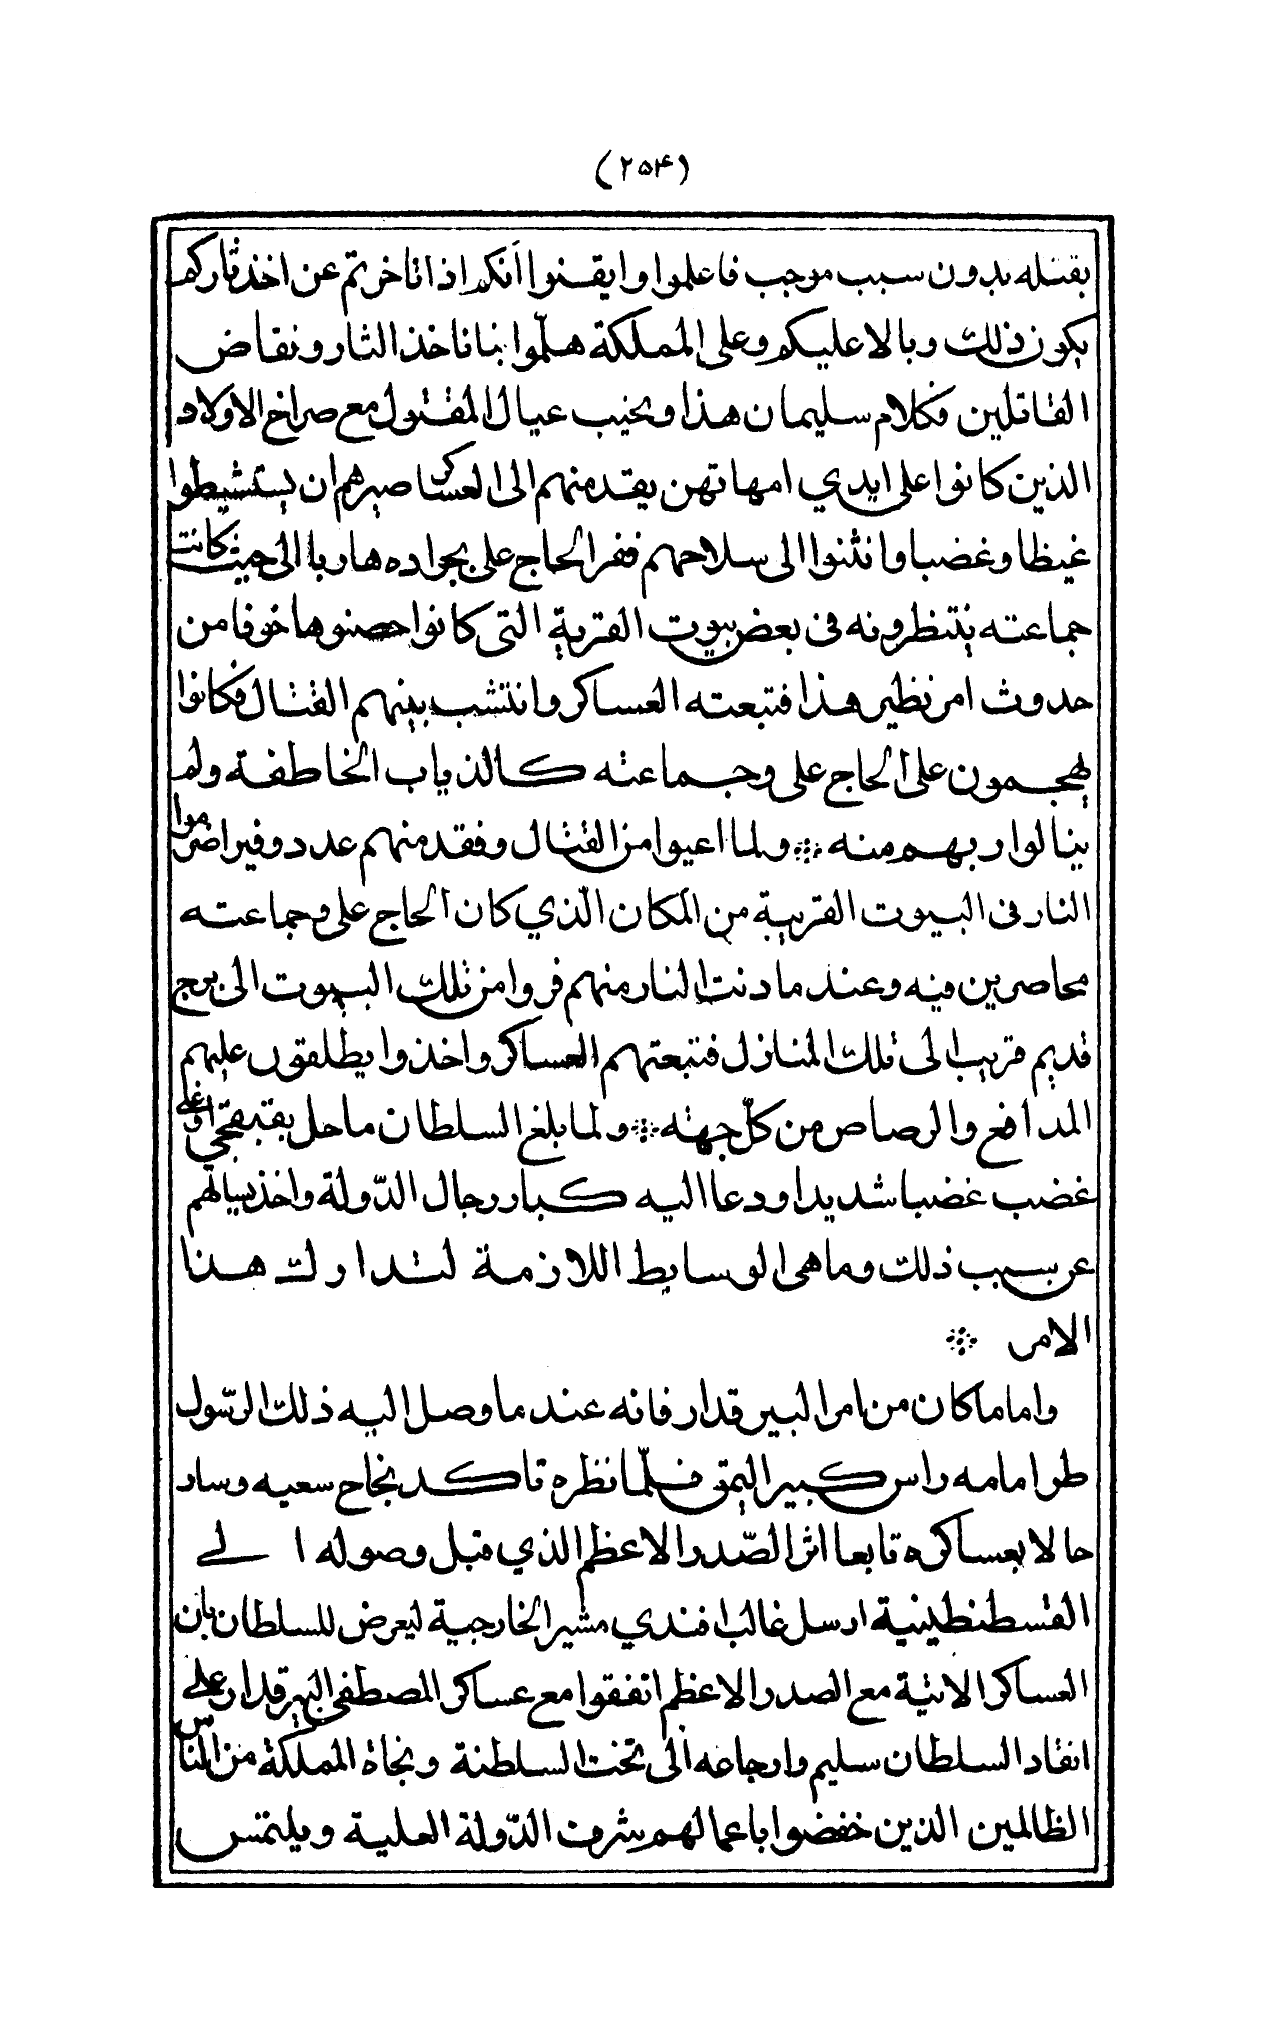 (٢٥۴)
بقتله بدون سبب موجب فاعلموا وايقنوا انكم اذا تاخرتم عن اخذ ثاركم
يكون ذلك وبالا عليكم وعلى المملكة هلّموا بنا ناخذ الثار ونقاض
القاتلين فكلام سليمان هذا ونحيب عيال المقتول مع صراخ الاولاد
الذين كانوا على ايدي امهاتهن يقدمنهم الى العساكر صيرهم ان يستشيطوا
غيظا وغضبا وانثنوا الى سلاحهم ففر الحاج على بجواده هاربا الى حيث كانت
جماعته ينتظرونه فى بعض بيوت القرية التى كانوا حصنوها خوفا من
حدوث امر نظير هذا فتبعته العساكر وانتشب بينهم القتال فكانوا
يهجمون على الحاج على وجماعته كالذياب الخاطفة ولم
ينالوا ربهم منه ※ ولما اعيوا من القتال وفقد منهم عدد وفير اضرموا
النار فى البيوت القريبة من المكان الّذي كان الحاج على وجماعته
محاصرين فيه وعند ما دنت النار منهم فروا من تلك البيوت الى برج
قديم قريب الى تلك المنازل فتبعتهم العساكر واخذوا يطلقون عليهم
المدافع والرصاص من كلّ جهته ※ ولما بلغ السلطان ما حل بقبقجي اوغلى
غضب غضبا شديدا ودعا اليه كبار رجال الدّولة واخذ يسالهم
عن سبب ذلك وما هى الوسايط اللازمة لتدارك هذا
الامر ※
واما ما كان من امر البيرقدار فانه عند ما وصل اليه ذلك الرّسول
طوا مامه راس كبير اليمق فلّما نظره تاكد نجاح سعيه وسار
حالا بعساكره تابعا اثر الصّدر الاعظم الذي قبل وصوله الى
القسطنطينية ارسل غالب افندي مشير الخارجية ليعرض للسلطان بان
العساكر الاتية مع الصدر الاعظم اتفقوا مع عساكر المصطفى البيرقدار على
انقاد السلطان سليم وارجاعه الى تخت السلطنة ونجاة المملكة من المناس
الظالمين الذين خفضوا باعمالهم شرف الدّولة العلية ويلتمس